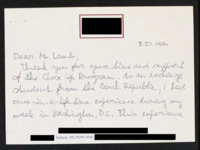 Dear Mr. Lamb,
Thank you for your time and support
of the Close Up Program. As an exchange
student from the Czech Republic, I had
once-in-a-life-time experience during my
week in Washington, D.C. This experience